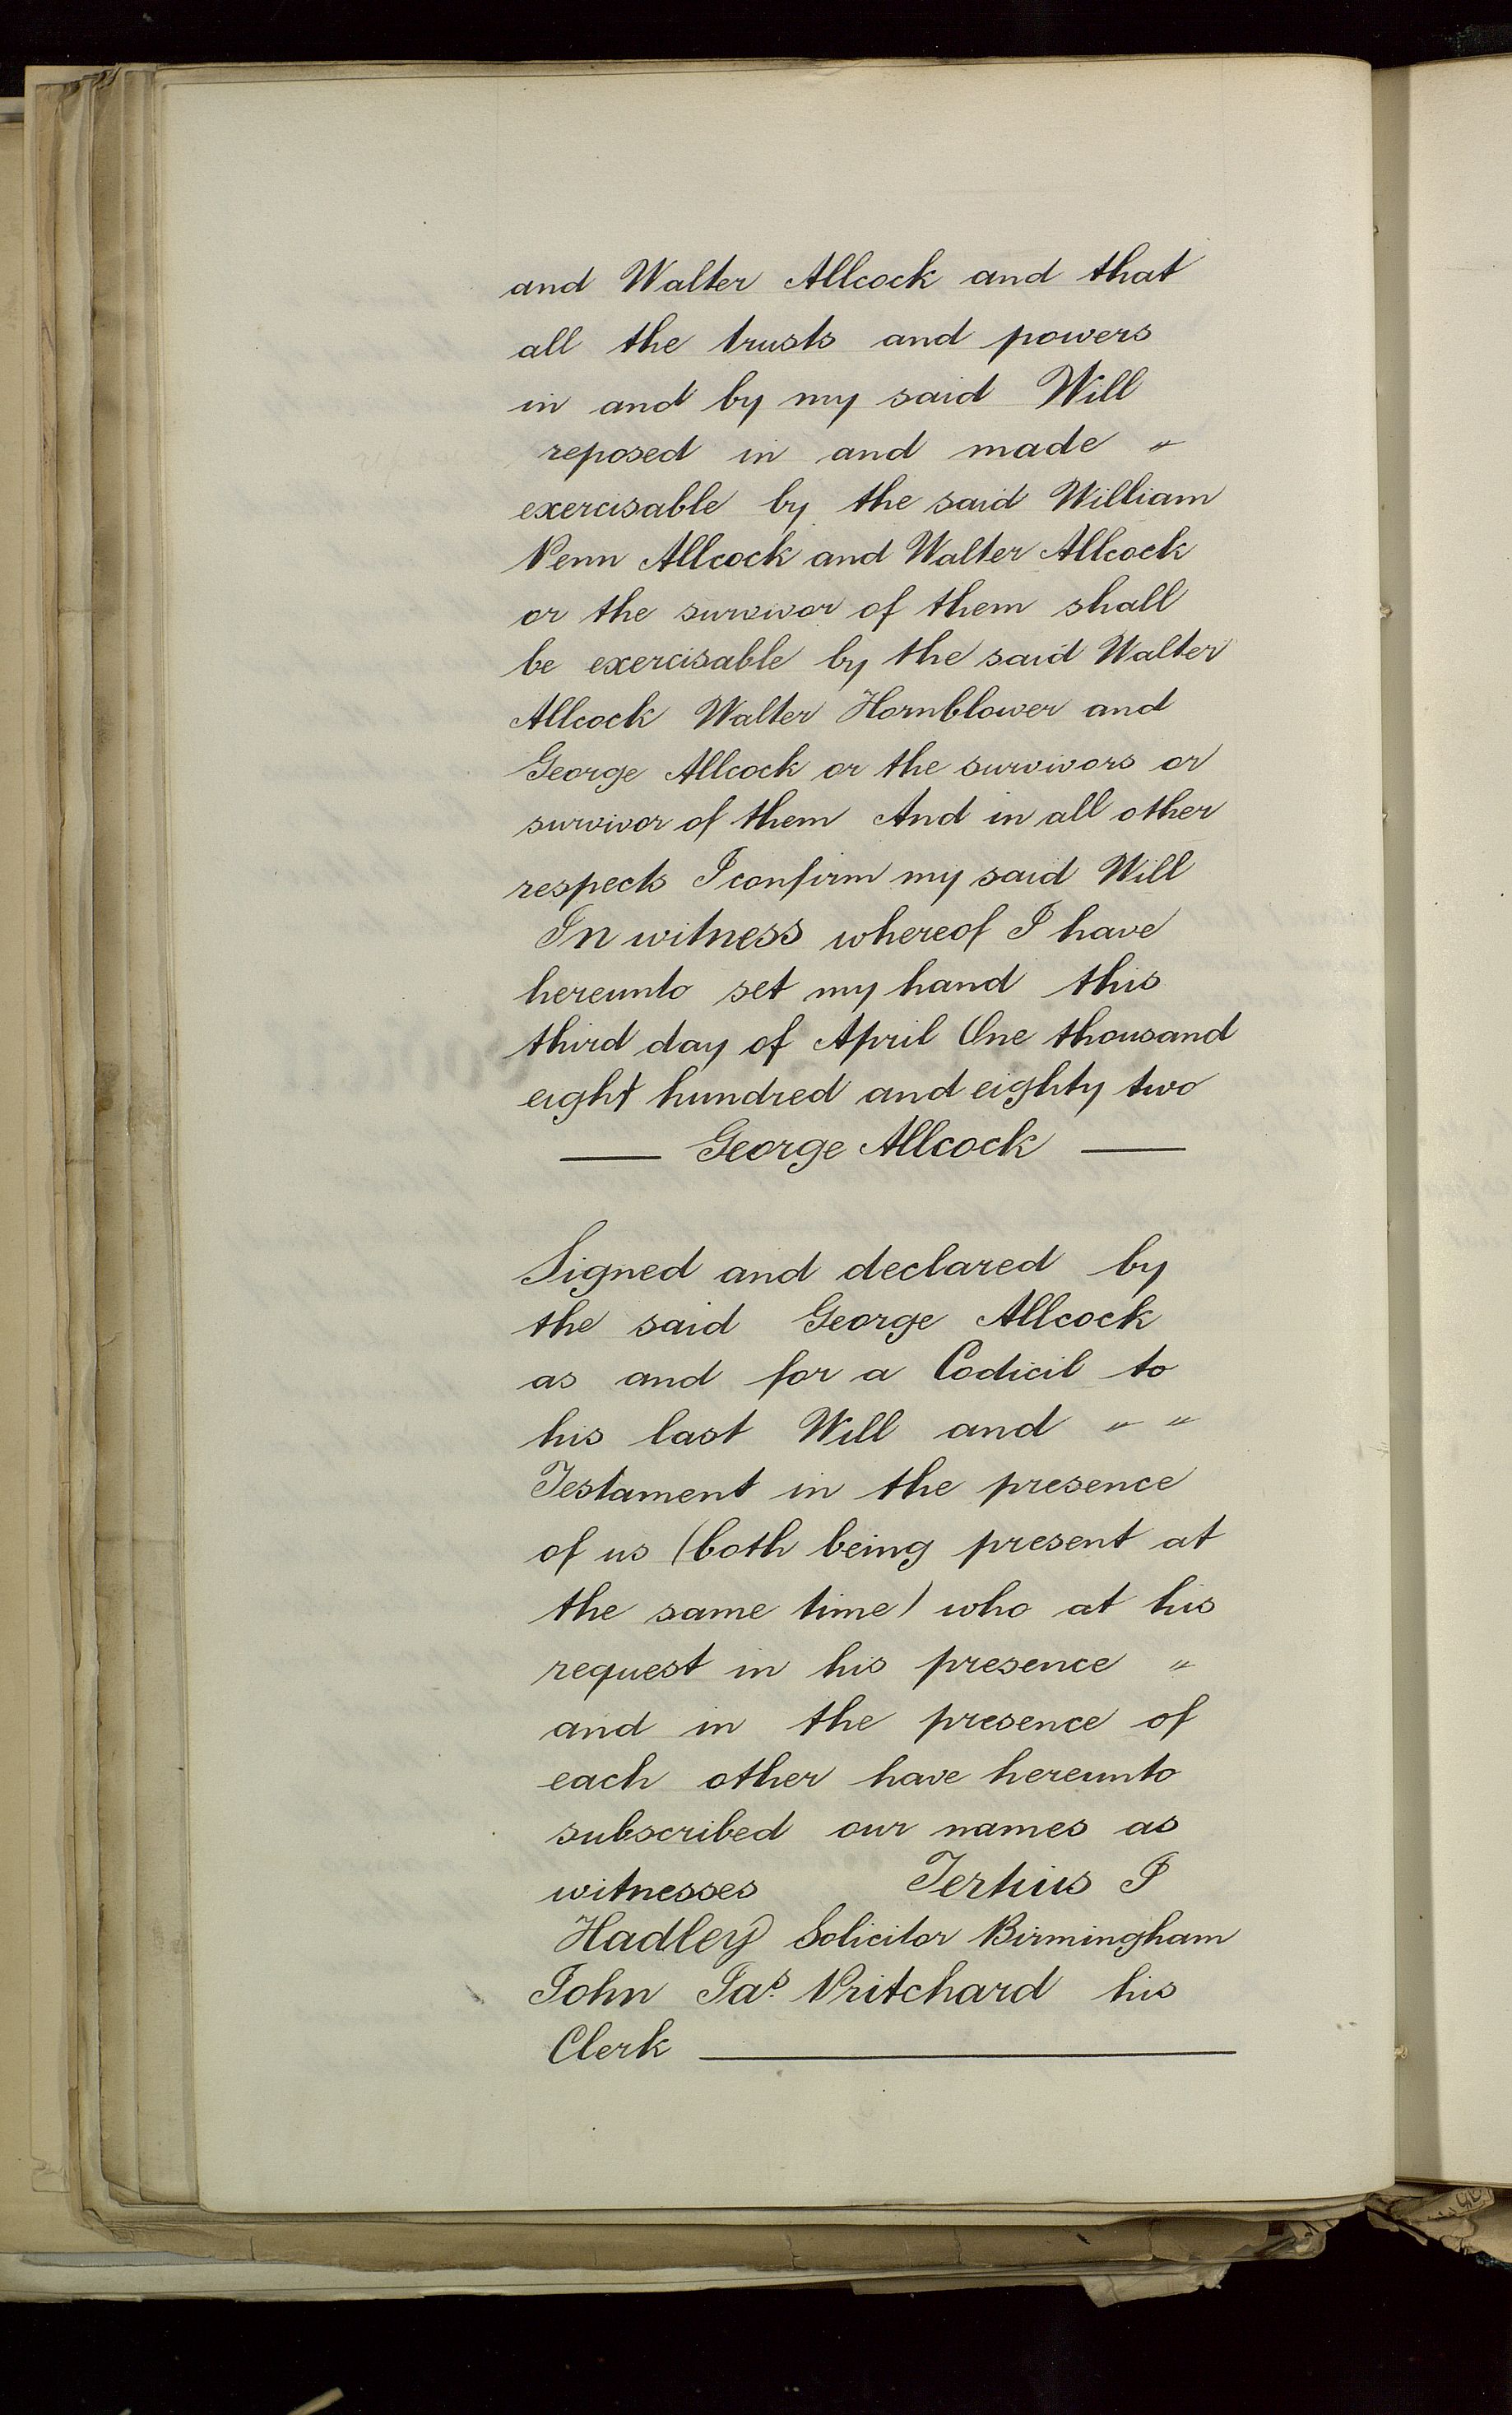 and Walter Allcock and that
all the trusts and powers
in and by my said Will
reposed in and made "
exercisable by the said William
Penn Allcock and Walter Allcock
or the survivor of them shall
be exercisable by the said Walter
Allcock Walter Hornblower and
George Allcock or the survivors or
survivor of them And in all other
respects I confirm my said Will
In witness whereof I have
hereunto set my hand this
third day of April One thousand
eight hundred and eighty two
— George Allcock —
Signed and declared by
the said George Allcock
as and for a Codicil to
his last Will and " "
Testament in the presence
of us (both being present at
the same time) who at his
request in his presence "
and in the presence of
each other have hereunto
subscribed our names as
witnesses Tertius I
Hadley Solicitor Birmingham
John Jas. Pritchard his
Clerk —